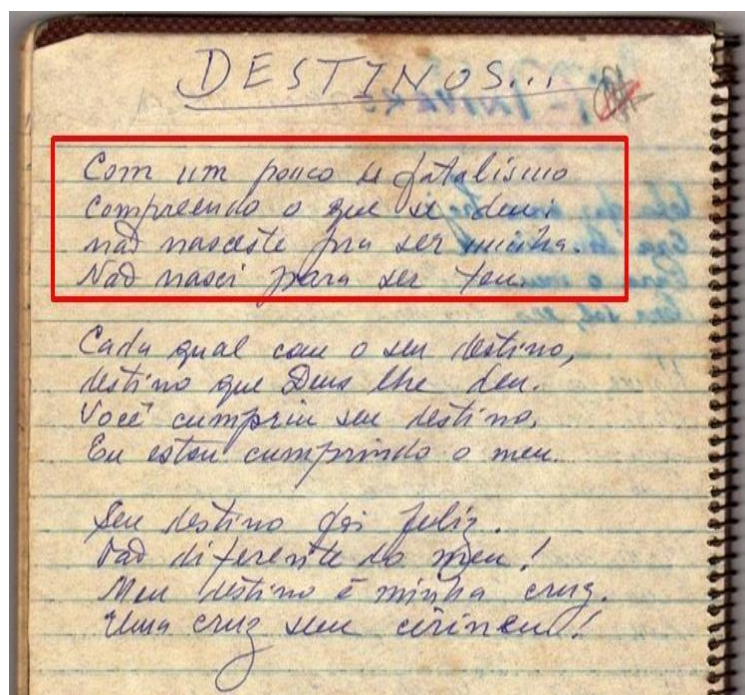 DESTINOS...
Com um pouco de fatalismo
compreendo o que se deu:
não nasceste pra ser minha.
Não nasci para ser teu.
Cada qual com o seu destino,
destino que Deus lhe deu.
Você cumpriu seu destino,
Eu estou cumprindo o meu.
Seu destino foi feliz.
Tão diferente do meu!
Meu destino é minha cruz.
Uma cruz sem cirineu!